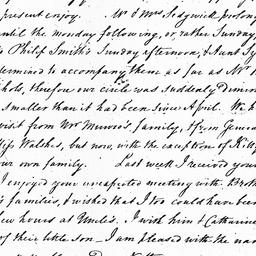 present enjoy. Mr & Mrs Sedgwick prolong
until the monday following, or rather Sunday,
is Philip Smith's Sunday afternoon, & Aunt Sy
termined to accompany them as far as Mr
hols, therefore our circle was suddenly dimin
smaller than it had been since April. We h
visit from Mr Munro's family, & from Genera
lifs Watches, but now, with the exception of Kitty
our own family. Last week I received your
I enjoyed your unexpected meeting with Broth
s families, & wished that I too could have been
few hours at Uncle's. I wish him & Catharine
of their little son— I am pleased with the nam